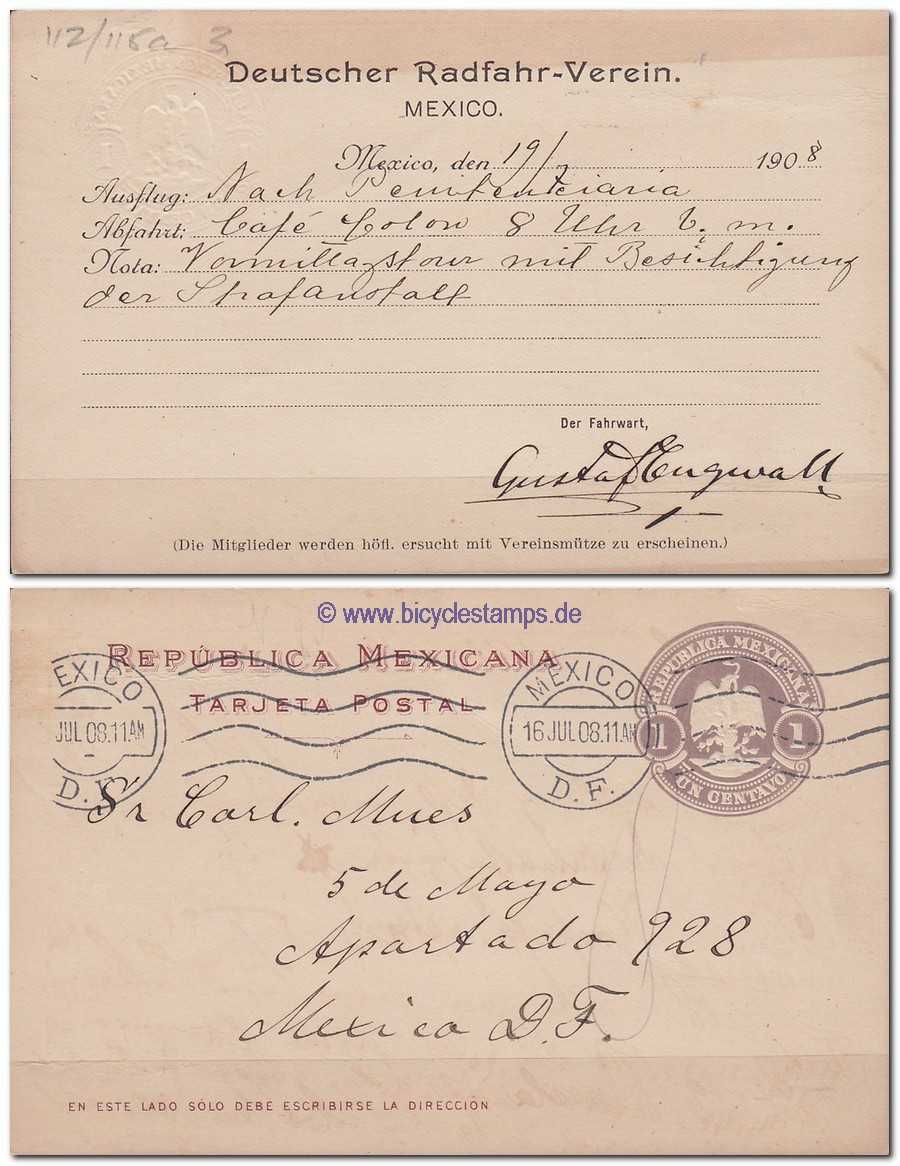 112/115a 3
Deutscher Radfahr-Verein.
MEXICO.
Mexico, den 19/7 1908
Ausflug: Nach Penitenciaria
Abfahrt: Café Colon 8 Uhr v. m.
Nota: Vormittagstour mit Besichtigung
der Strafanstalt
Der Fahrwart,
Gustaf Engwall
(Die Mitglieder werden höfl. ersucht mit Vereinsmütze zu erscheinen.)
© www.bicyclestamps.de
REPÚBLICA MEXICANA
TARJETA POSTAL
EXICO
JUL 08.11AM
D.F.
MEXICO
16 JUL 08.11AM
D. F.
REPUBLICA MEXICANA
1 1
UN CENTAVO
Sr Carl. Mues
5 de Mayo
Apartado 928
Mexico D.F.
EN ESTE LADO SÓLO DEBE ESCRIBIRSE LA DIRECCIÓN